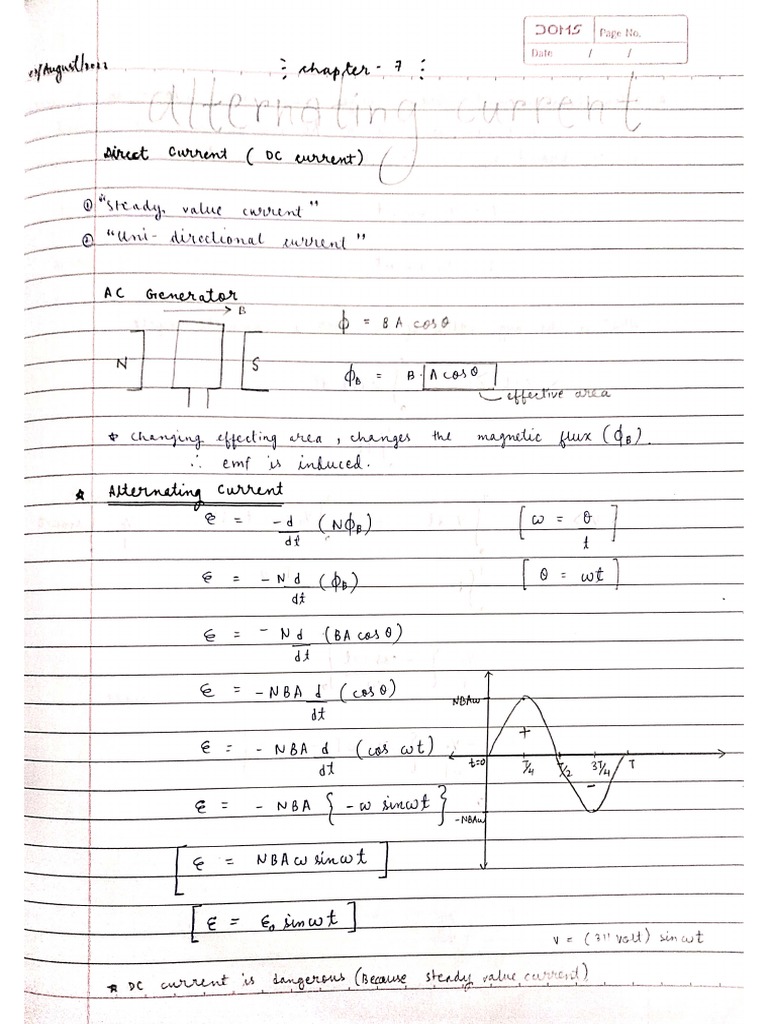 DOMS Page No.
Date / /
/August/2022
Chapter - 7
alternating current
Direct Current ( DC current)
① "Steady, value current"
② "Uni- directional current"
AC Generator
B
N S
ϕ = BA cosθ
ϕB = B. A cosθ
effective area
* Changing effecting area, changes the magnetic flux (ϕB).
∴ emf is induced.
* Alternating Current
ε = -d/dt (NϕB) [ω = θ/t]
ε = -N d/dt (ϕB) [θ = ωt]
ε = -N d/dt (BA cosθ)
ε = -NBA d/dt (cosθ)
ε = - NBA d/dt (cos ωt)
ε = - NBA {-ω sinωt}
[ε = NBAω sinωt]
[ε = ε₀ sinωt]
NBAω
+
t=0 T/4 T/2 3T/4 T
-
-NBAω
V = (311 volt) sinωt
* DC current is dangerous (Because steady value current)